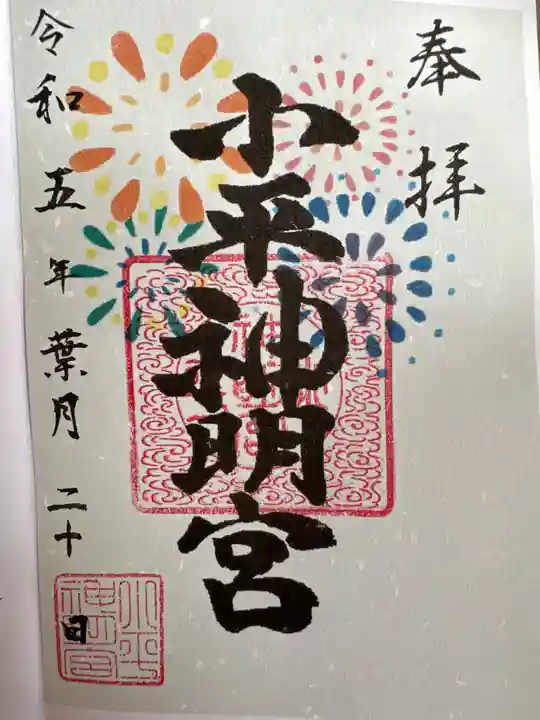 奉拝
小平神明宮
令和五年葉月二十日
小平神明宮